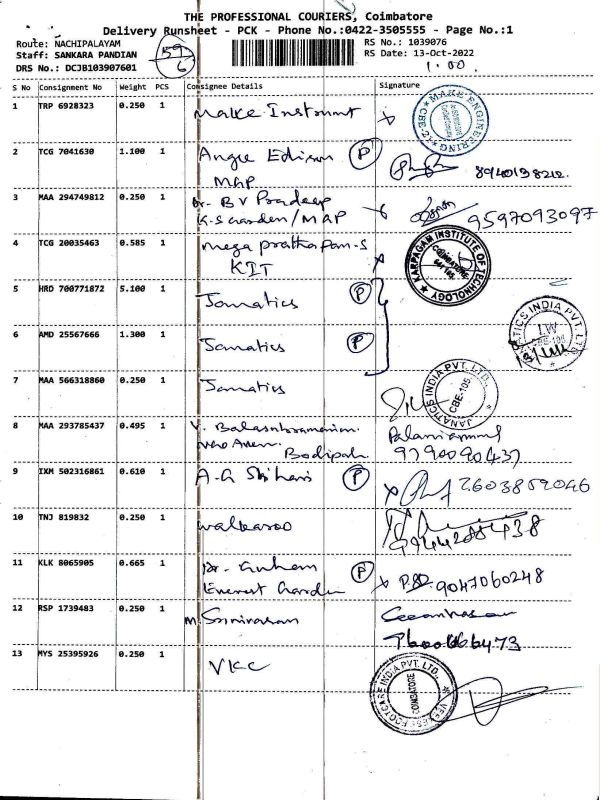 THE PROFESSIONAL COURIERS, Coimbatore
Delivery Runsheet - PCK - Phone No.:0422-3505555 - Page No.:1
Route: NACHIPALAYAM
RS No.: 1039076
Staff: SANKARA PANDIAN
RS Date: 13-Oct-2022
DRS No.: DCJB103907601
59
6
1.00
S No Consignment No Weight PCS Consignee Details Signature
1 TRP 6928323 0.250 1 Make Instrument
MAKE ENGINEERING
CBE-21
2 TCG 7041630 1.100 1 Angre Edison P
MAP
8940138212
3 MAA 294749812 0.250 1 Dr. B V Pradeep
K.S Garden/MAP
9597093097
4 TCG 20035463 0.585 1 mega prathapan-S
KIT
KARPAGAM INSTITUTE OF TECHNOLOGY
COIMBATORE
641 105
5 HRD 700771872 5.100 1 Janatics P
6 AMD 25567666 1.300 1 Janatics P
JANATICS INDIA PVT. LTD.
I.W
CBE-105
7 MAA 566318860 0.250 1 Janatics
JANATICS INDIA PVT. LTD.
CBE-105
8 MAA 293785437 0.495 1 V. Balasubramaniam
Bodipal
9790090437
9 IXM 502316861 0.610 1 A.G P
2603859046
10 TNJ 819832 0.250 1 walkaroo
11 KLK 8065905 0.665 1 Dr. Guham P
Everest Garden
9047060248
12 RSP 1739483 0.250 1 M. Srinivasan
13 MYS 25395926 0.250 1 VKC
VEEKESY FOOTCARE INDIA PVT. LTD.
COIMBATORE